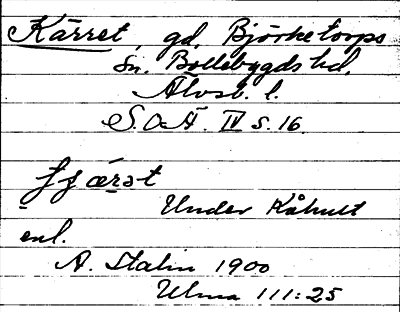 Kärret, gd, Björketorps
sn. Bollebygds hd.
Älvsb. l.
S.O.Ä. IV s. 16.
Under Kåhult
enl.
A. Stalin 1900
Ulma 111:25